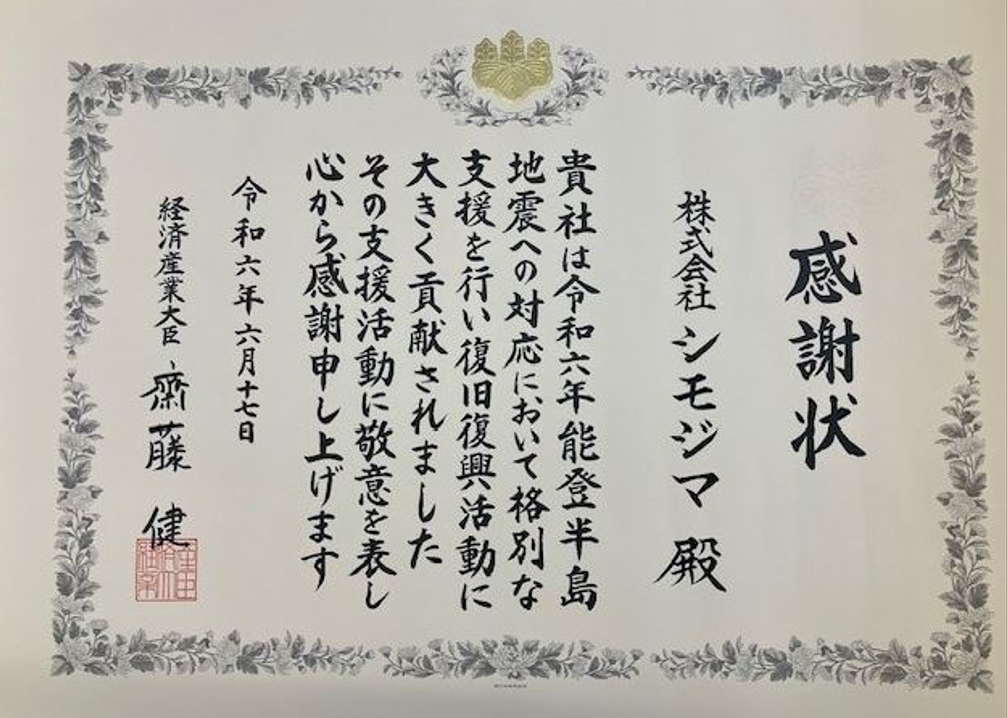 感謝状
株式会社 シモジマ 殿
貴社は令和六年能登半島
地震への対応において格別な
支援を行い復旧復興活動に
大きく貢献されました
その支援活動に敬意を表し
心から感謝申し上げます
令和六年六月十七日
経済産業大臣 齋藤 健